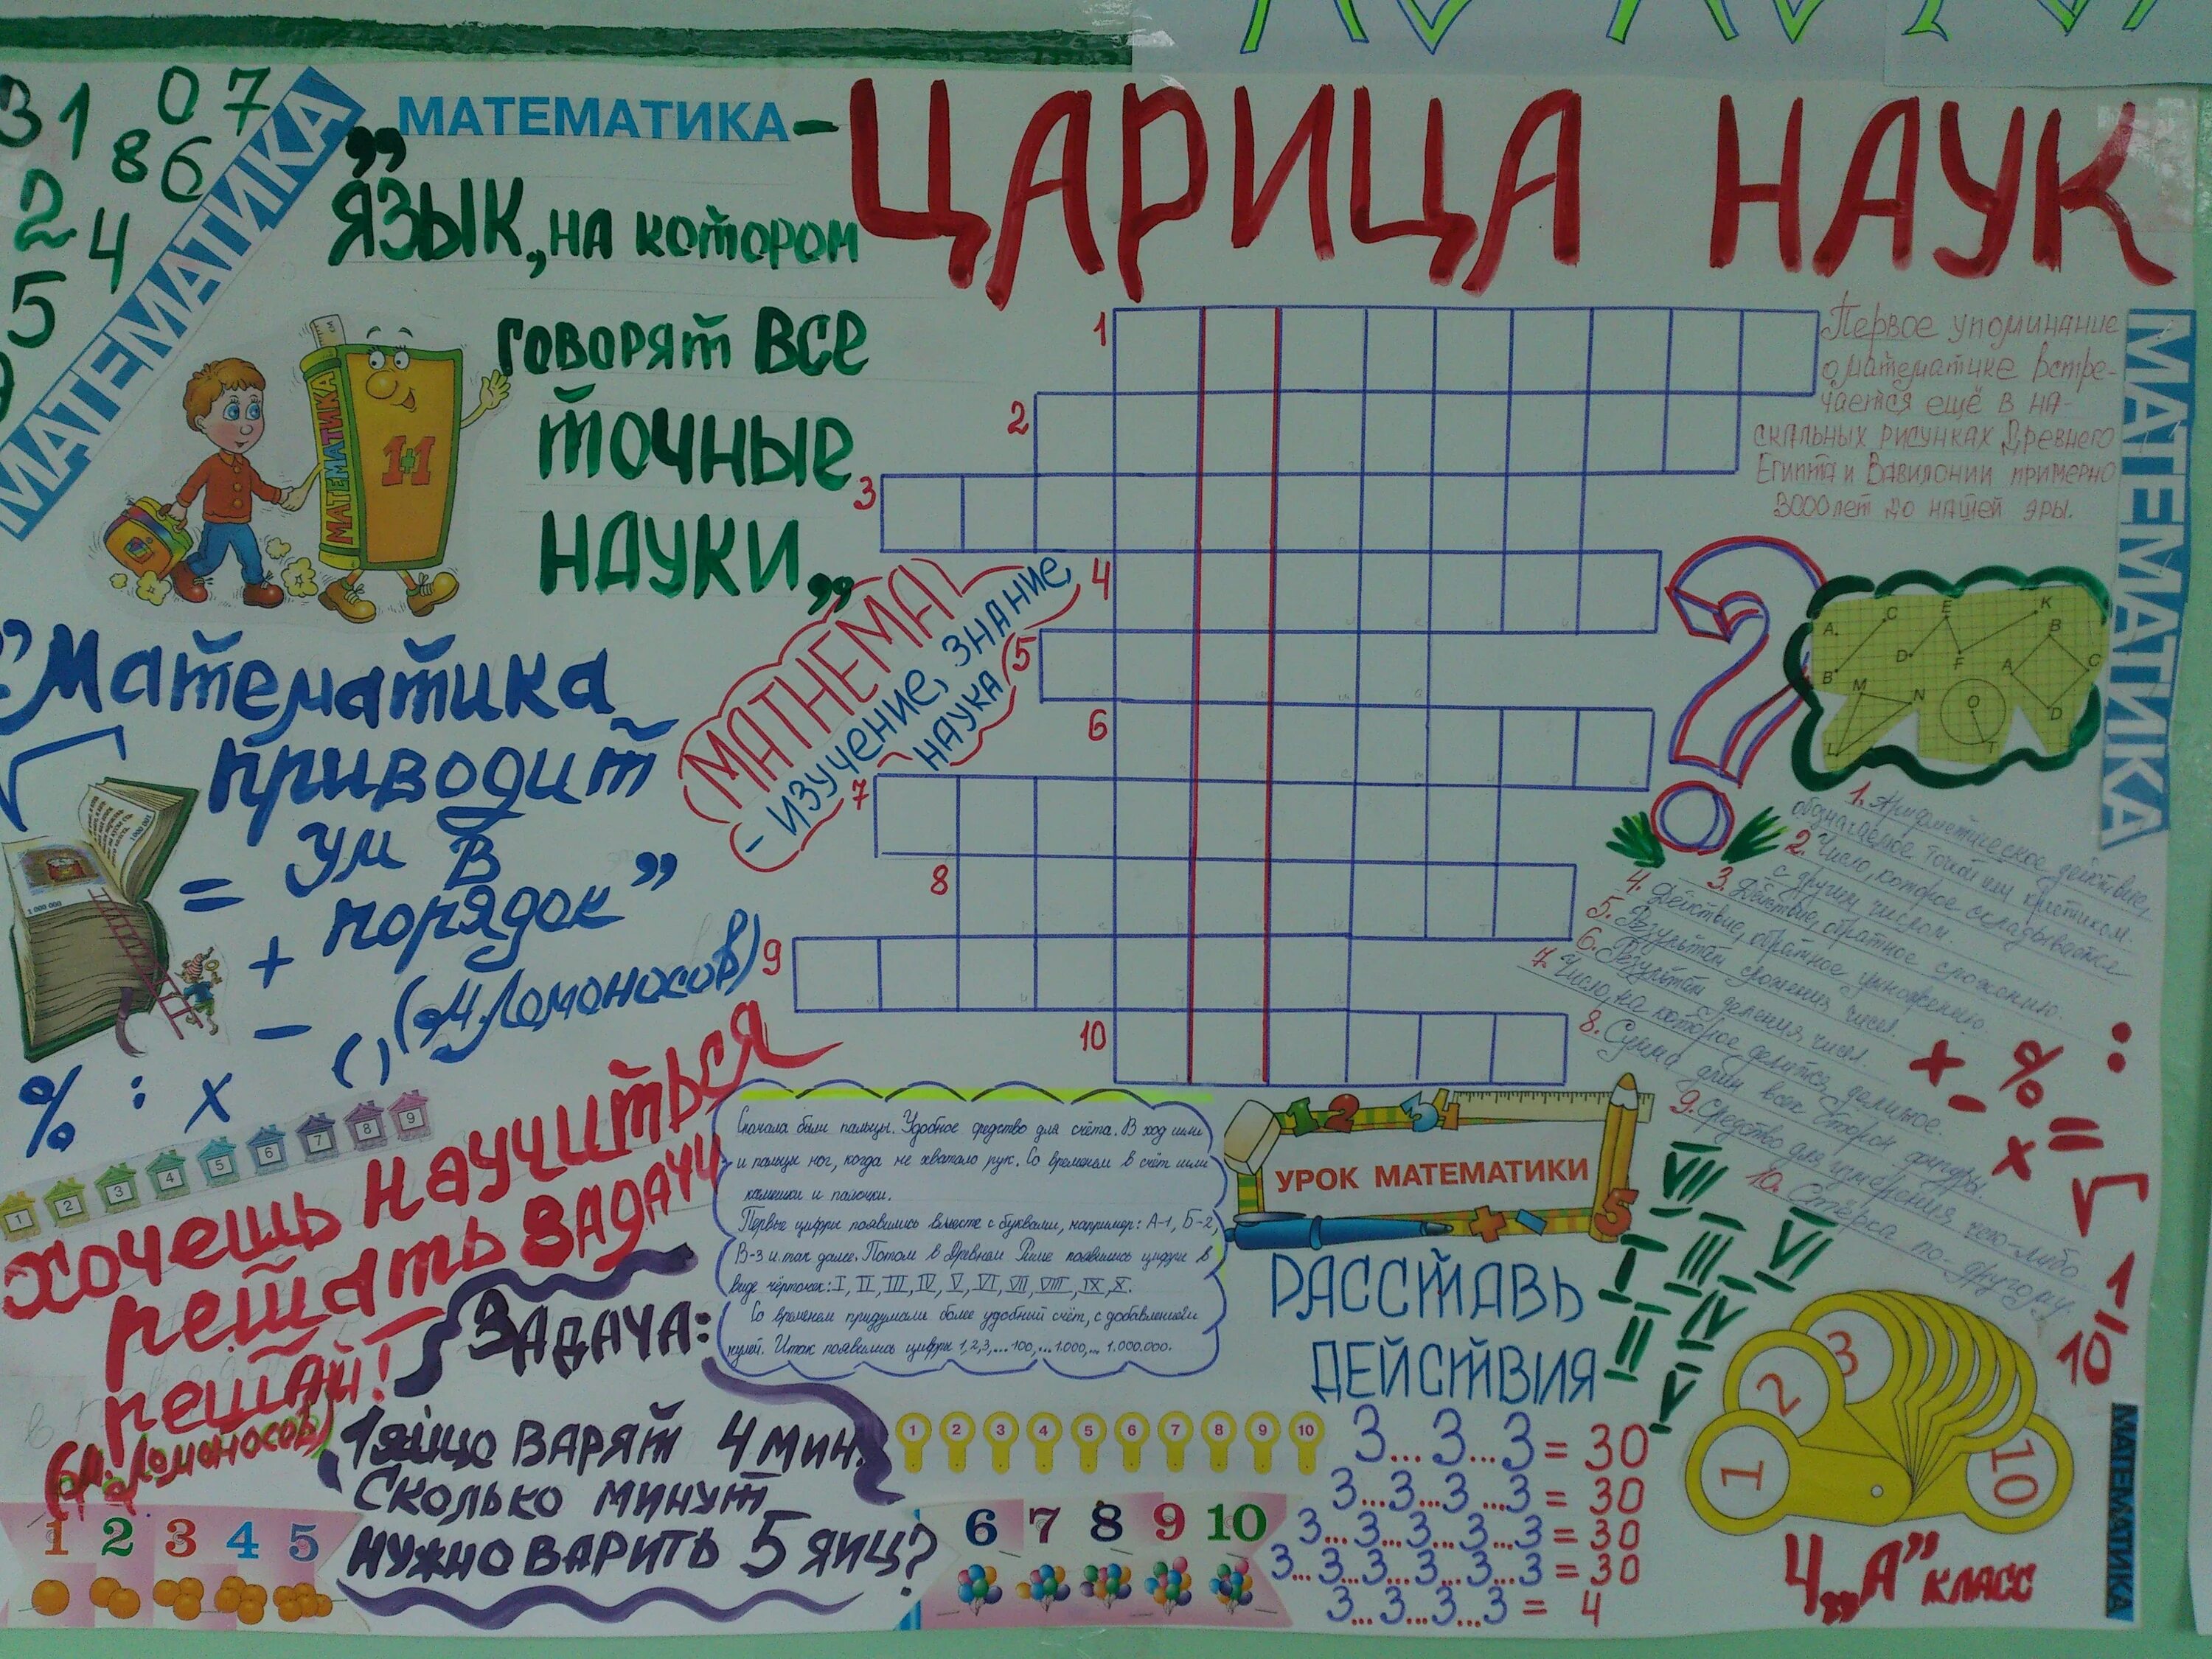 МАТЕМАТИКА-
ЦАРИЦА НАУК
3 1 0 7
8 6
2 4
5
МАТЕМАТИКА
„ЯЗЫК, на котором
говорят все
точные
науки„
МАТЕМАТИКА
1+1
"Математика
приводит
= ум в
+ порядок"
- (М.Ломоносов)
% : x ( )
1 000 000
1 000 001
1 2 3 4 5 6 7 8 9
Хочешь научиться
решать задачи
решай!
(М.Ломоносов)
MATHEMA
- изучение, знание,
наука
1
2
3
4
5
6
7
8
9
10
Первое упоминание
о математике встре-
чается ещё в на-
скальных рисунках Древнего
Египта и Вавилонии примерно
3000 лет до нашей эры.
МАТЕМАТИКА
A C E K
B D F
A B C D
M N L
O T
1. Арифметическое действие,
обозначаемое точкой или крестиком.
2. Число, которое складывается
с другим числом.
3. Действие, обратное сложению.
4. Действие, обратное умножению.
5. Результат сложения чисел.
6. Результат деления чисел.
7. Число, на которое делится делимое.
8. Сумма длин всех сторон фигуры.
9. Средство для измерения чего-либо
10. Стёрка по-другому.
+ - % : = x √
1/10
Сначала были пальцы. Удобное средство для счёта. В ход шли
и пальцы ног, когда не хватало рук. Со временем в счёт шли
камешки и палочки.
Первые цифры появились вместе с буквами, например: А-1, Б-2,
В-3 и так далее. Потом в Древнем Риме появились цифры в
виде чёрточек: I, II, III, IV, V, VI, VII, VIII, IX, X.
Со временем придумали более удобный счёт, с добавлением
нулей. Итак появились цифры 1,2,3,...100,...1.000,... 1.000.000.
1 2 3 4
УРОК МАТЕМАТИКИ
5
VII
I III VI
II IV
V
РАССТАВЬ
ДЕЙСТВИЯ
3...3...3 = 30
3...3...3...3 = 30
3...3...3...3...3 = 30
3...3...3...3...3...3 = 30
3...3...3...3 = 4
Задача:
1 яйцо варят 4 мин.
Сколько минут
нужно варить 5 яиц?
1 2 3 4 5
1 2 3 4 5 6 7 8 9 10
6 7 8 9 10
1 2 3 10
4 „А” класс
МАТЕМАТИКА